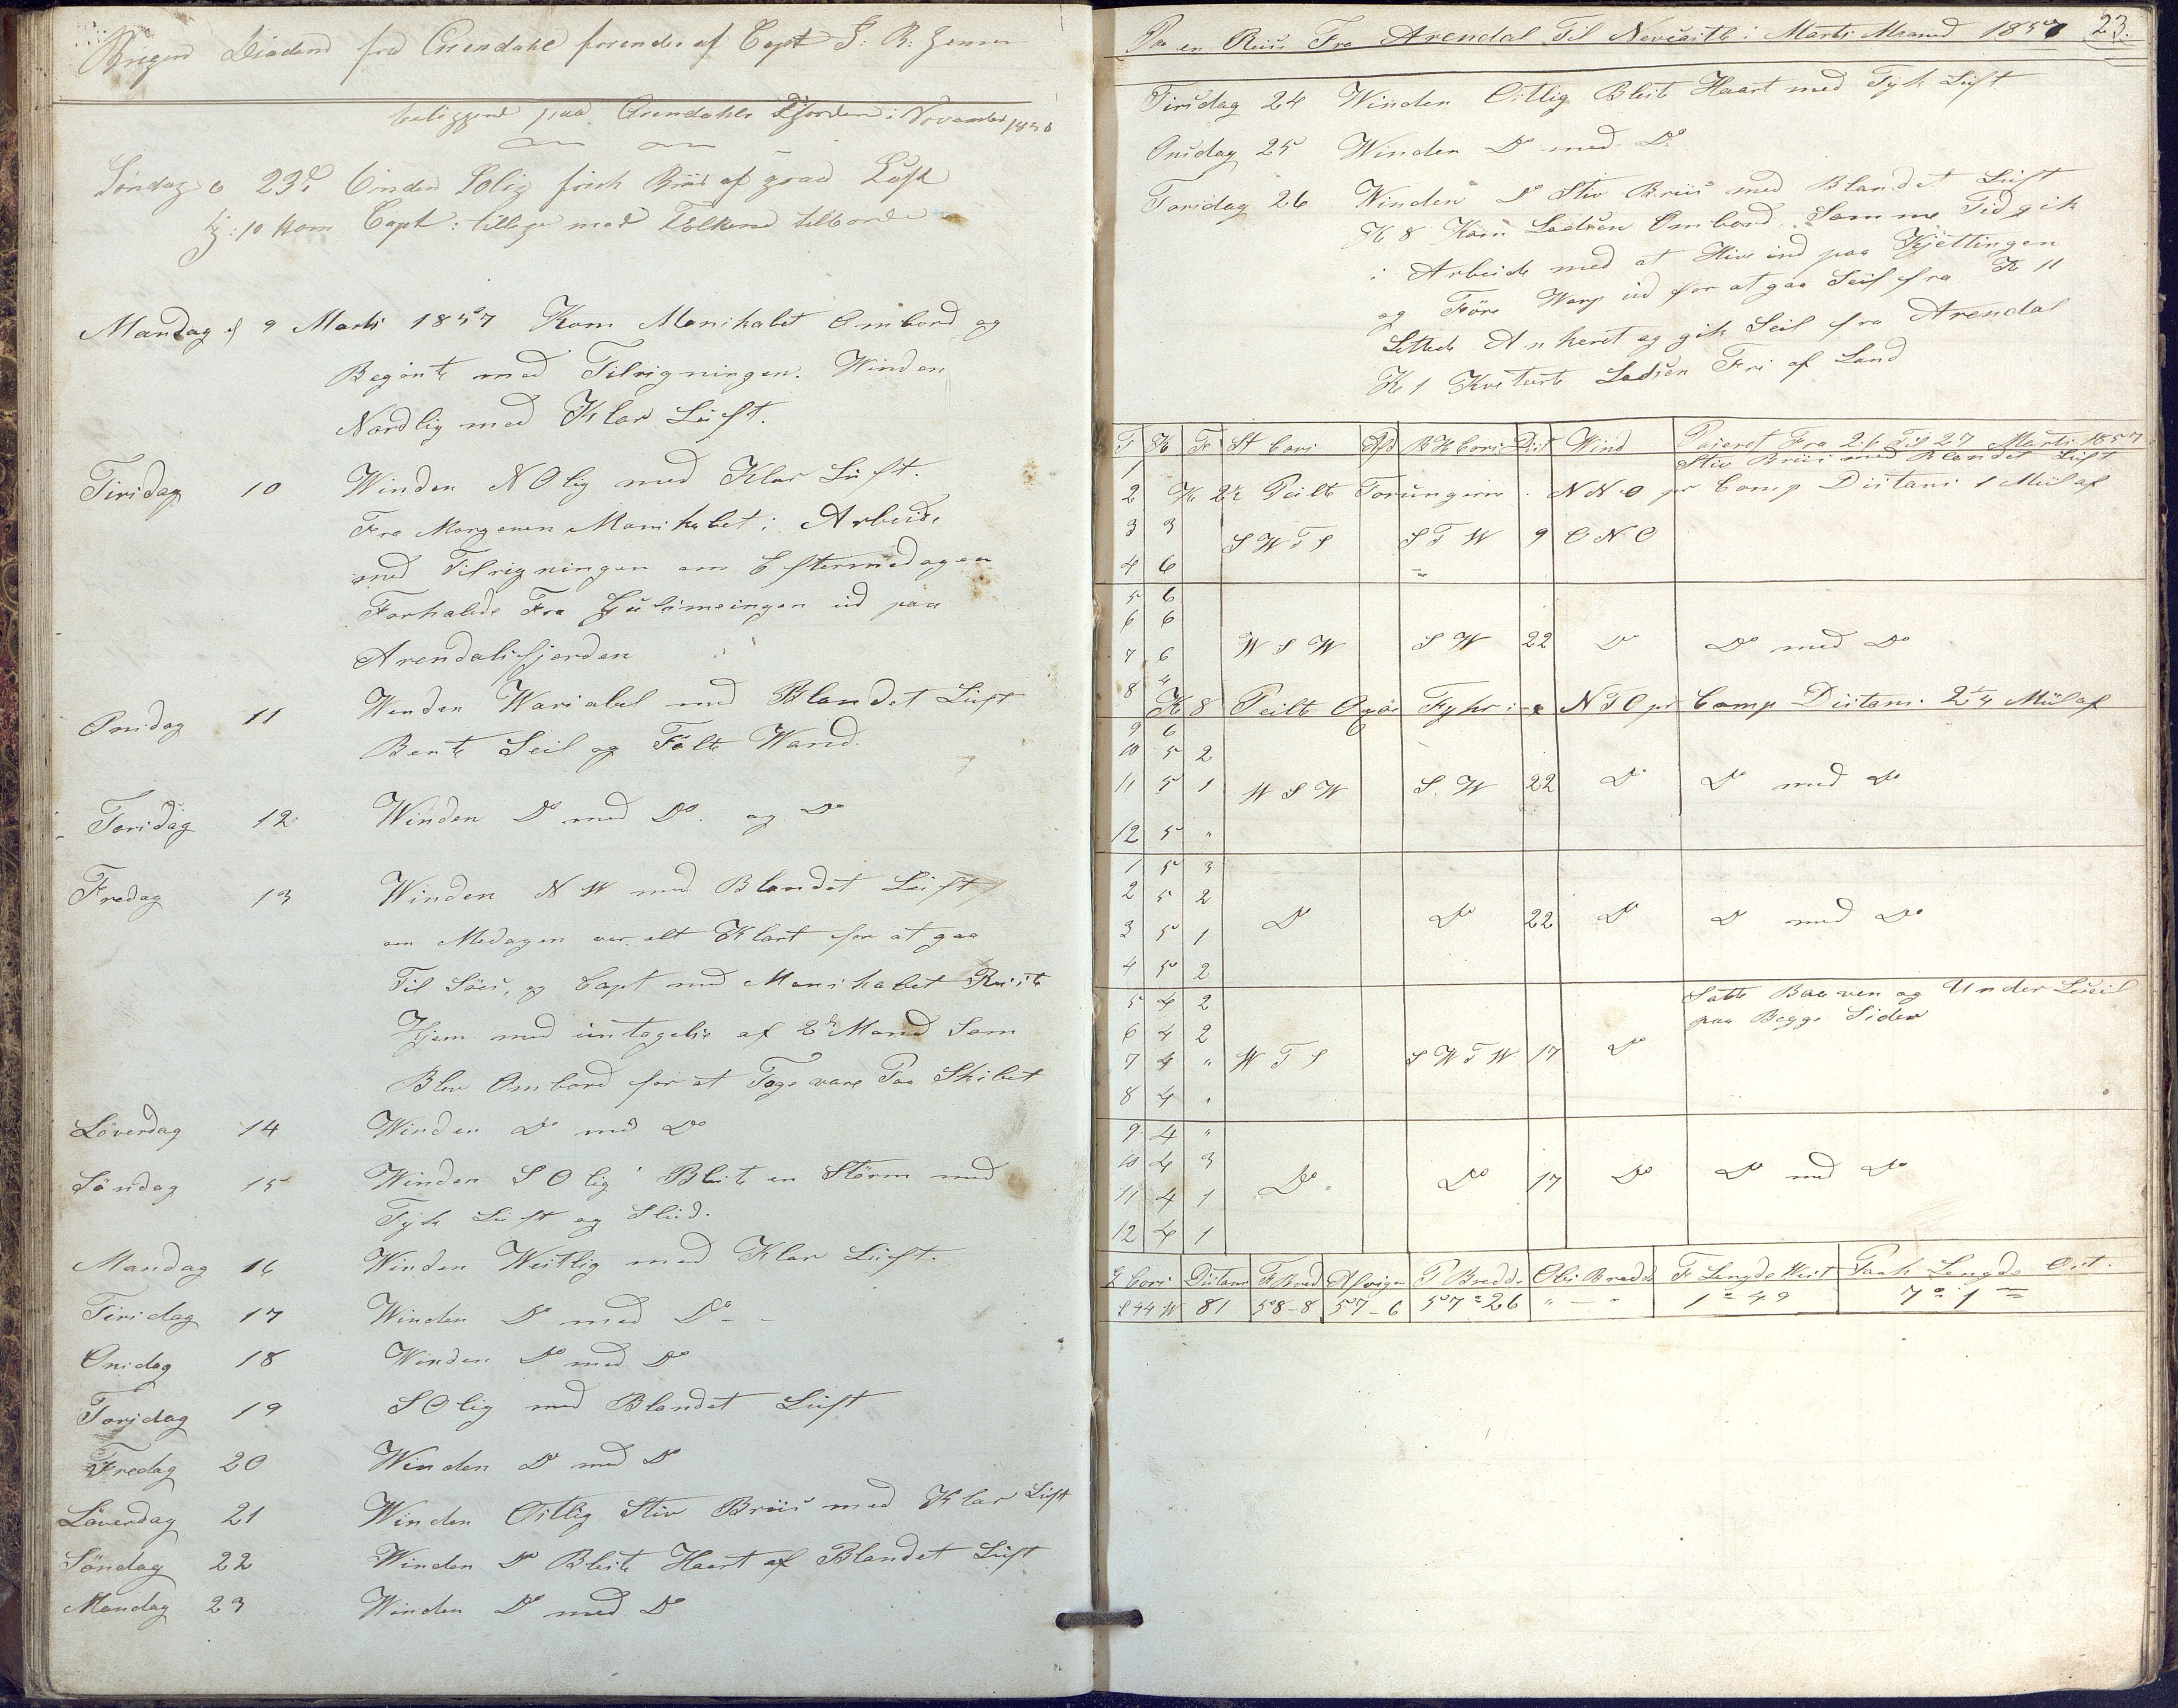 Brigen Diadem fra Arendahl förende af Capt S: B: Jensen
beliggend paa Arendahls Fjorden i November 1856
Söndag d 23de Vinden Solig frisk Briis af graa Luft
Kj: 10 kom Capt: tillige med Folkene tilborde
Mandag d 9 Marts 1857 Kom Manskabet Ombord og
Begönte med Tilrigningen. Winden
Nordlig med Klar Luft.
Tirsdag 10 Winden N Olig med Klar Luft.
Fra Morgenen Manskabet i Arbeide
med Tilrigningen om Eftermedagen
Forhalede Fra ud paa
Arendalsfjorden
Onsdag 11 Winden Wariabel med Blandet Luft
Bente Seil og Fölte Wand.
Torsdag 12 Winden Do med Do. og Do
Fredag 13 Winden N W med Blandet Luft
om Medagen var alt Klart for at gaa
Til Söes, og Capt med Manskabet Reiste
Hjem med untagelse af 2de Mand Som
Blev Ombord for at Tage vare Paa Skibet
Löverdag 14 Winden Do med Do
Söndag 15 Winden S O lig Bleste en Störm med
Tyk Luft og Slud.
Mandag 16 Winden Westlig med Klar Luft.
Tirsdag 17 Winden Do med Do - -
Onsdag 18 Winden Do med Do
Torsdag 19 S O lig med Blandet Luft
Fredag 20 Winden Do med Do
Löverdag 21 Winden Ostlig Stiv Briis med Klar Luft
Söndag 22 Winden Do Bleste Haart af Blandet Luft
Mandag 23 Winden Do med Do
Paa en Reise Fra Arendal Til Newcastle i Marts Maaned 1857 23.
Tirsdag 24 Winden Ostlig Bleste Haart med Tyk Luft
Onsdag 25 Winden Do med Do
Torsdag 26 Winden Do Stiv Briis med Blandet Luft
K 8 Kom Lodsen Ombord. Samme Tid gik
i Arbeide med at Hive ind paa Kjettingen
og Före Warp ud for at gaa Seil fra K 11
Lettede Ankeret og gik Seil fra Arendal
K 1 Kviterte Lodsen Fri af Land
T K F St Cors Afd B H Cors Dist Wind Passeret Fra 26 Til 27 Marts 1857
1 Stiv Briis med Blandet Luft
2 K 2½ Peilte Torungerne i N N O pr Comp Distans 1 Miil af
3 3 S W T S S T W 9 O N O
4 6
5 6
6 6
7 6 W S W S W 22 Do Do med Do
8 4
K 8 Peilte Oxöe Fyhr i N T O pr Comp Distans 2¼ Miil af
9 6
10 5 2
11 5 1 W S W S. W 22 Do Do med Do
12 5 "
1 5 3
2 5 2
3 5 1 Do Do 22 Do Do med Do
4 5 2
5 4 2 Satte Baaven og Under Leeseil
6 4 2 paa Begge Sider
7 4 " W T S S W T W 17 Do
8 4 "
9 4 "
10 4 3
11 4 1 Do Do 17 Do Do med Do
12 4 1
G Cors Distans F Bred Afvigen P Bredde Obs Bredde F Lengde West Paak Lengde Ost.
S 44 W 81 58-8 57-6 57°26 " - " 1° 49 7° 1